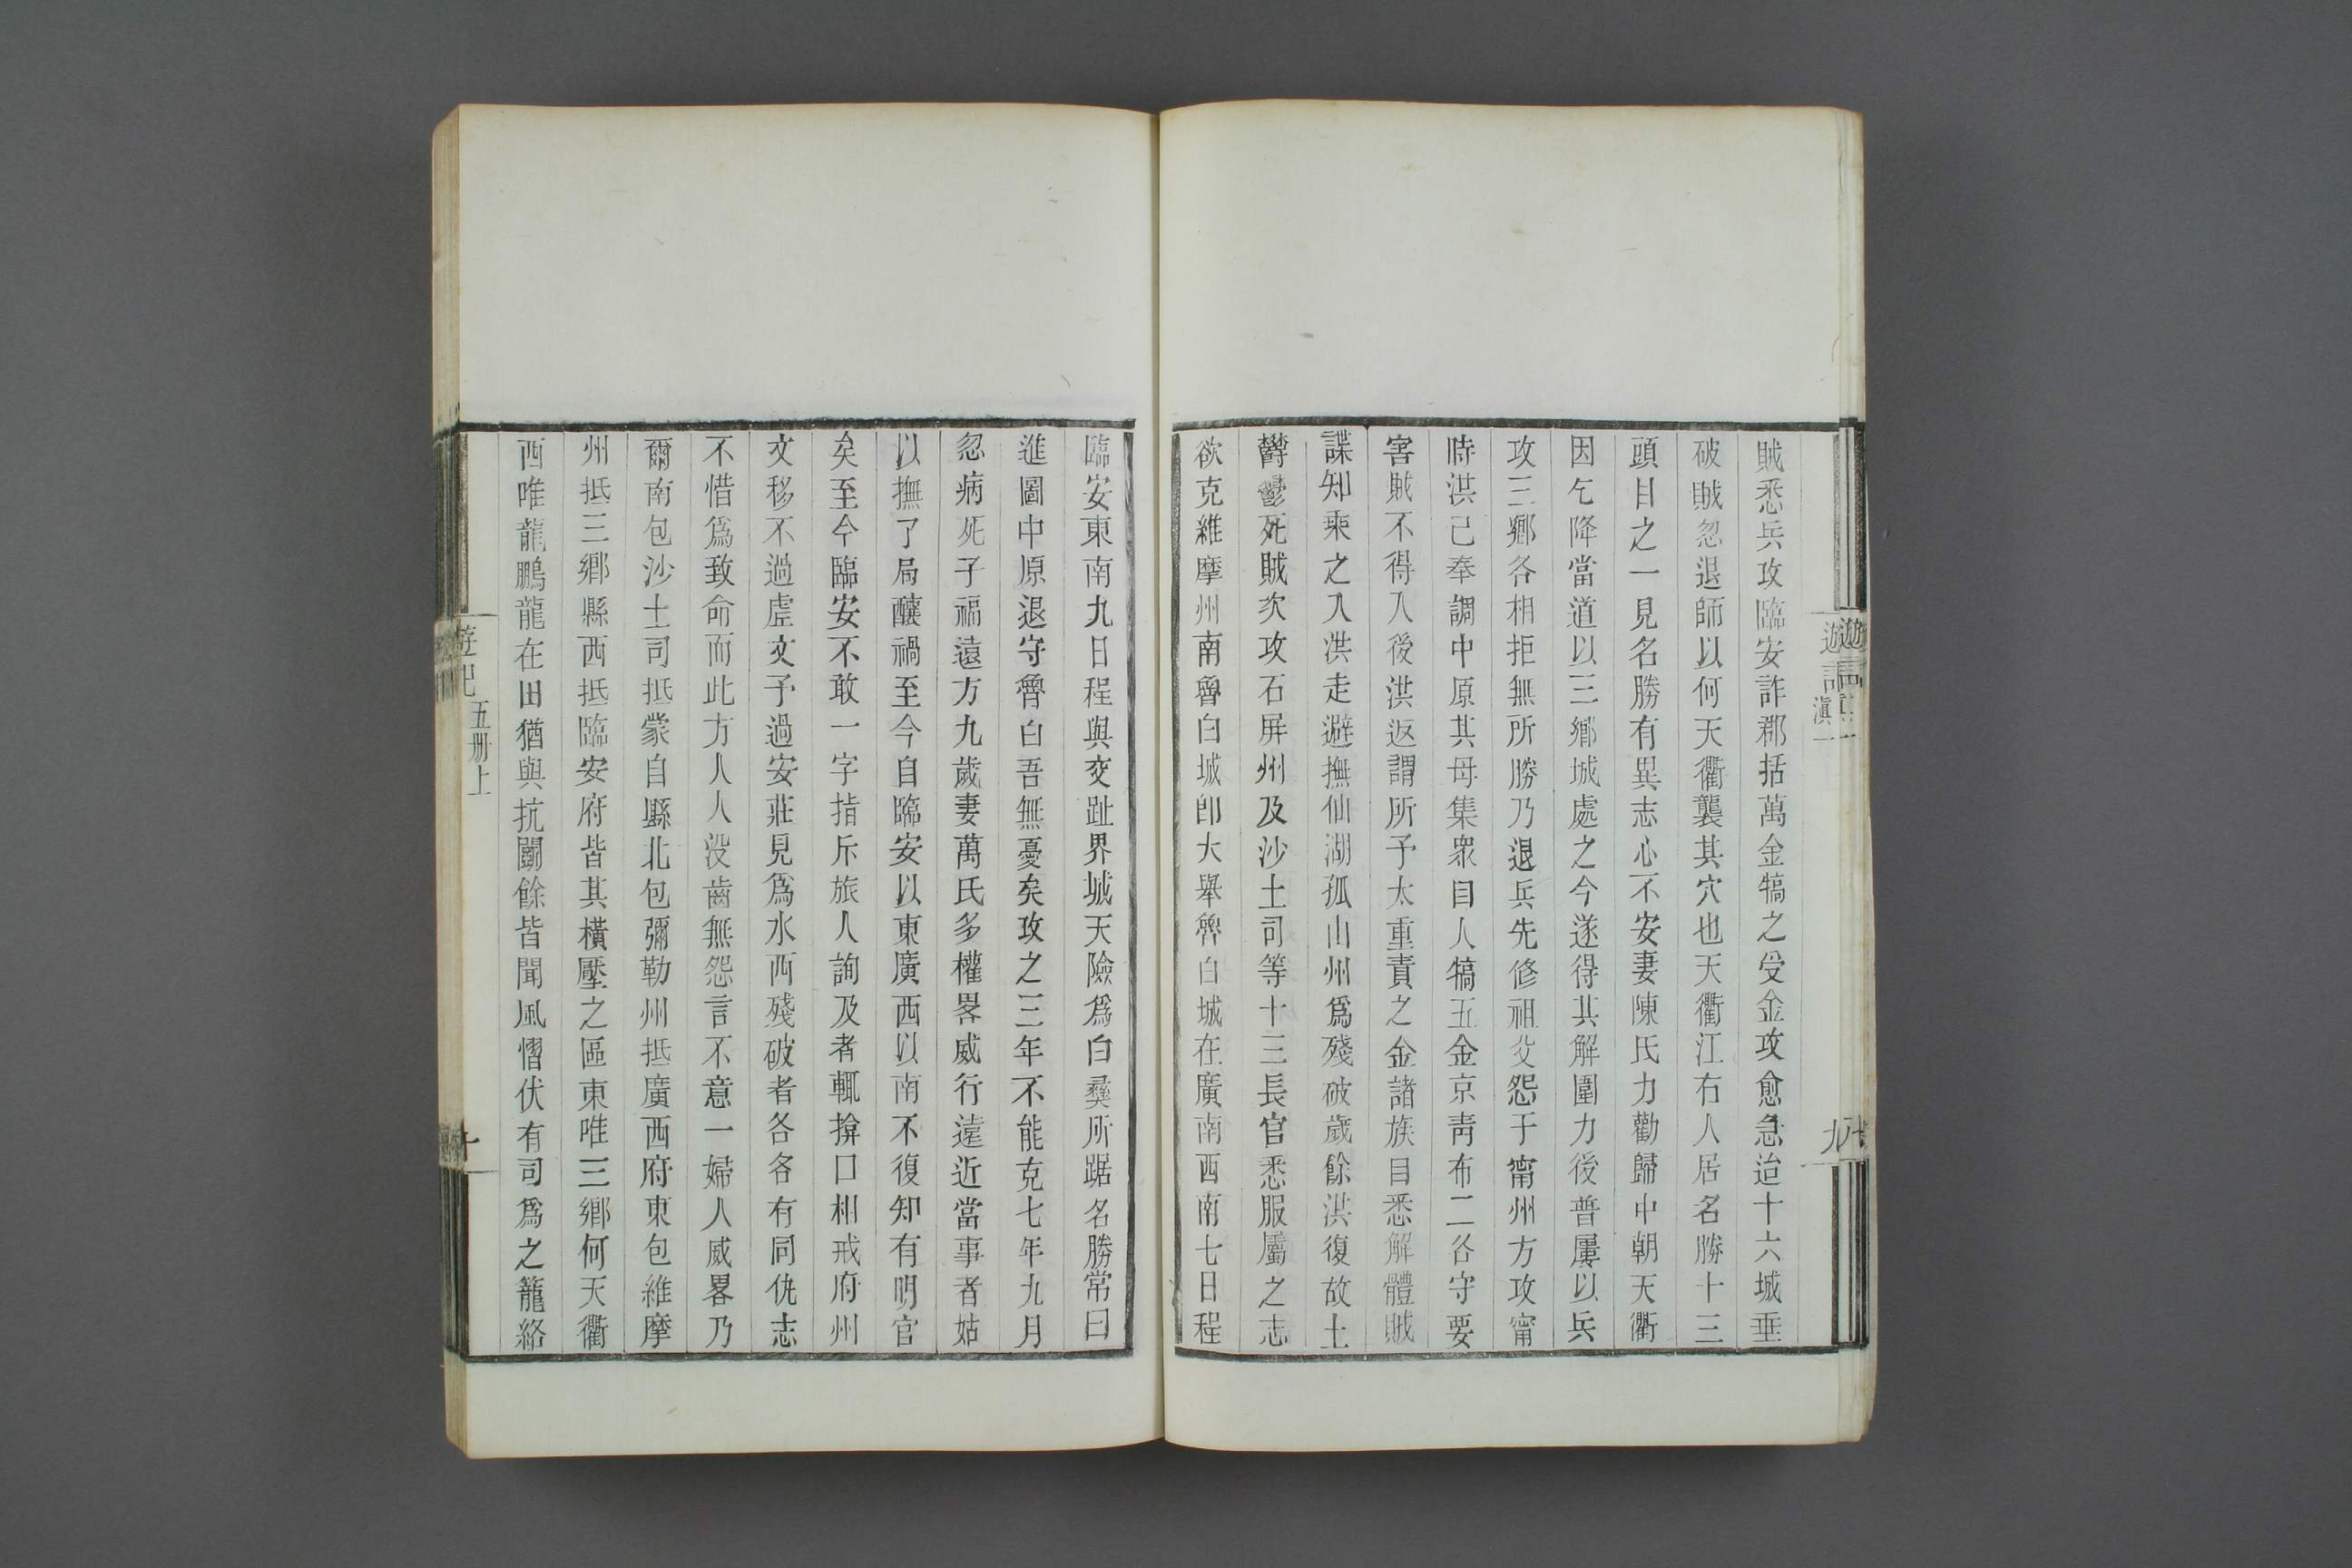 賊悉兵攻臨安詐郡括萬金犒之受金攻愈急迨十六城垂
破賊忽退師以何天衢襲其穴也天衢江右人居名勝十三
頭目之一見名勝有異志心不安妻陳氏力勸歸中朝天衢
因乞降當道以三鄉城處之今遂得其解圍力後普屢以兵
攻三鄉各相拒無所勝乃退兵先修祖父怨于甯州方攻甯
時洪已奉調中原其母集衆目人犒五金京靑布二各守要
害賊不得入後洪返謂所予太重責之金諸族目悉解體賊
諜知乘之入洪走避撫仙湖孤山州爲殘破歲餘洪復故土
鬱鬱死賊次攻石屏州及沙土司等十三長官悉服屬之志
欲克維摩州南魯白城卽大舉魯白城在廣南西南七日程
臨安東南九日程與交趾界城天險爲白彝所踞名勝常曰
進圖中原退守魯白吾無憂矣攻之三年不能克七年九月
忽病死子福遠方九歲妻萬氏多權畧威行遠近當事者姑
以撫了局釀禍至今自臨安以東廣西以南不復知有明官
矣至今臨安不敢一字指斥旅人詢及者輒揜口相戒府州
文移不過虛文予過安莊見爲水西殘破者各各有同仇志
不惜爲致命而此方人人沒齒無怨言不意一婦人威畧乃
爾南包沙土司抵蒙自縣北包彌勒州抵廣西府東包維摩
州抵三鄉縣西抵臨安府皆其橫壓之區東唯三鄉何天衢
西唯龍鵬龍在田猶與抗鬬餘皆聞風慴伏有司爲之籠絡
遊記
五册上
十
遊記
滇一
九